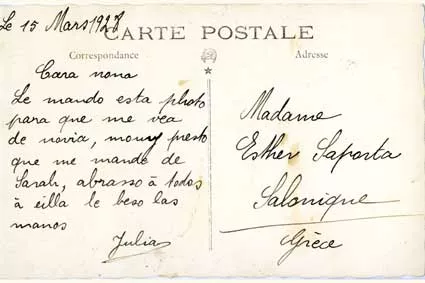 Le 15 Mars 1928
CARTE POSTALE
Correspondance
Adresse
Cara nona
Le mando esta photo
para que me vea
de novia, mouy presto
que me mande de
Sarah, abrasso à todos
à eilla le beso las
manos
Julia
Madame
Esther Saporta
Salonique
Grèce